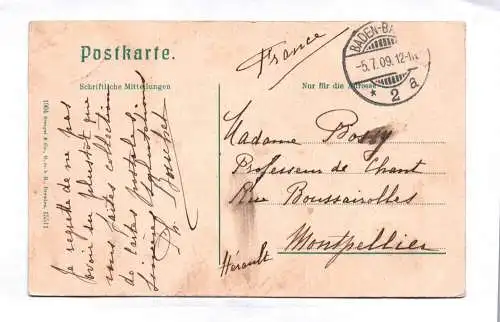 Postkarte.
Schriftliche Mitteilungen
Nur für die Adresse
France
BADEN-BA
-5.7.09.12-1N
* 2 a
Madame Bossy
Professeur de Chant
Rue Boussairolles
Montpellier
Hérault
Je regrette de ne pas
avoir su plus tôt que
vous faites collection
de cartes postales.
Sincères Salutations